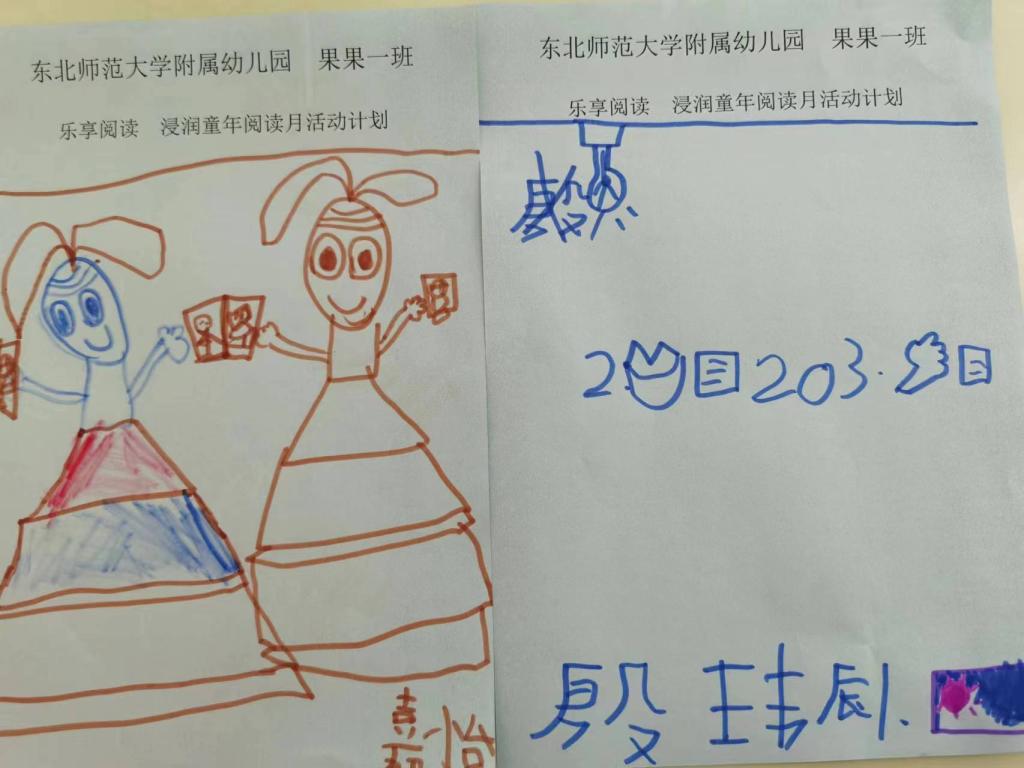 东北师范大学附属幼儿园 果果一班
乐享阅读 浸润童年阅读月活动计划
嘉怡
东北师范大学附属幼儿园 果果一班
乐享阅读 浸润童年阅读月活动计划
2 203.
殷